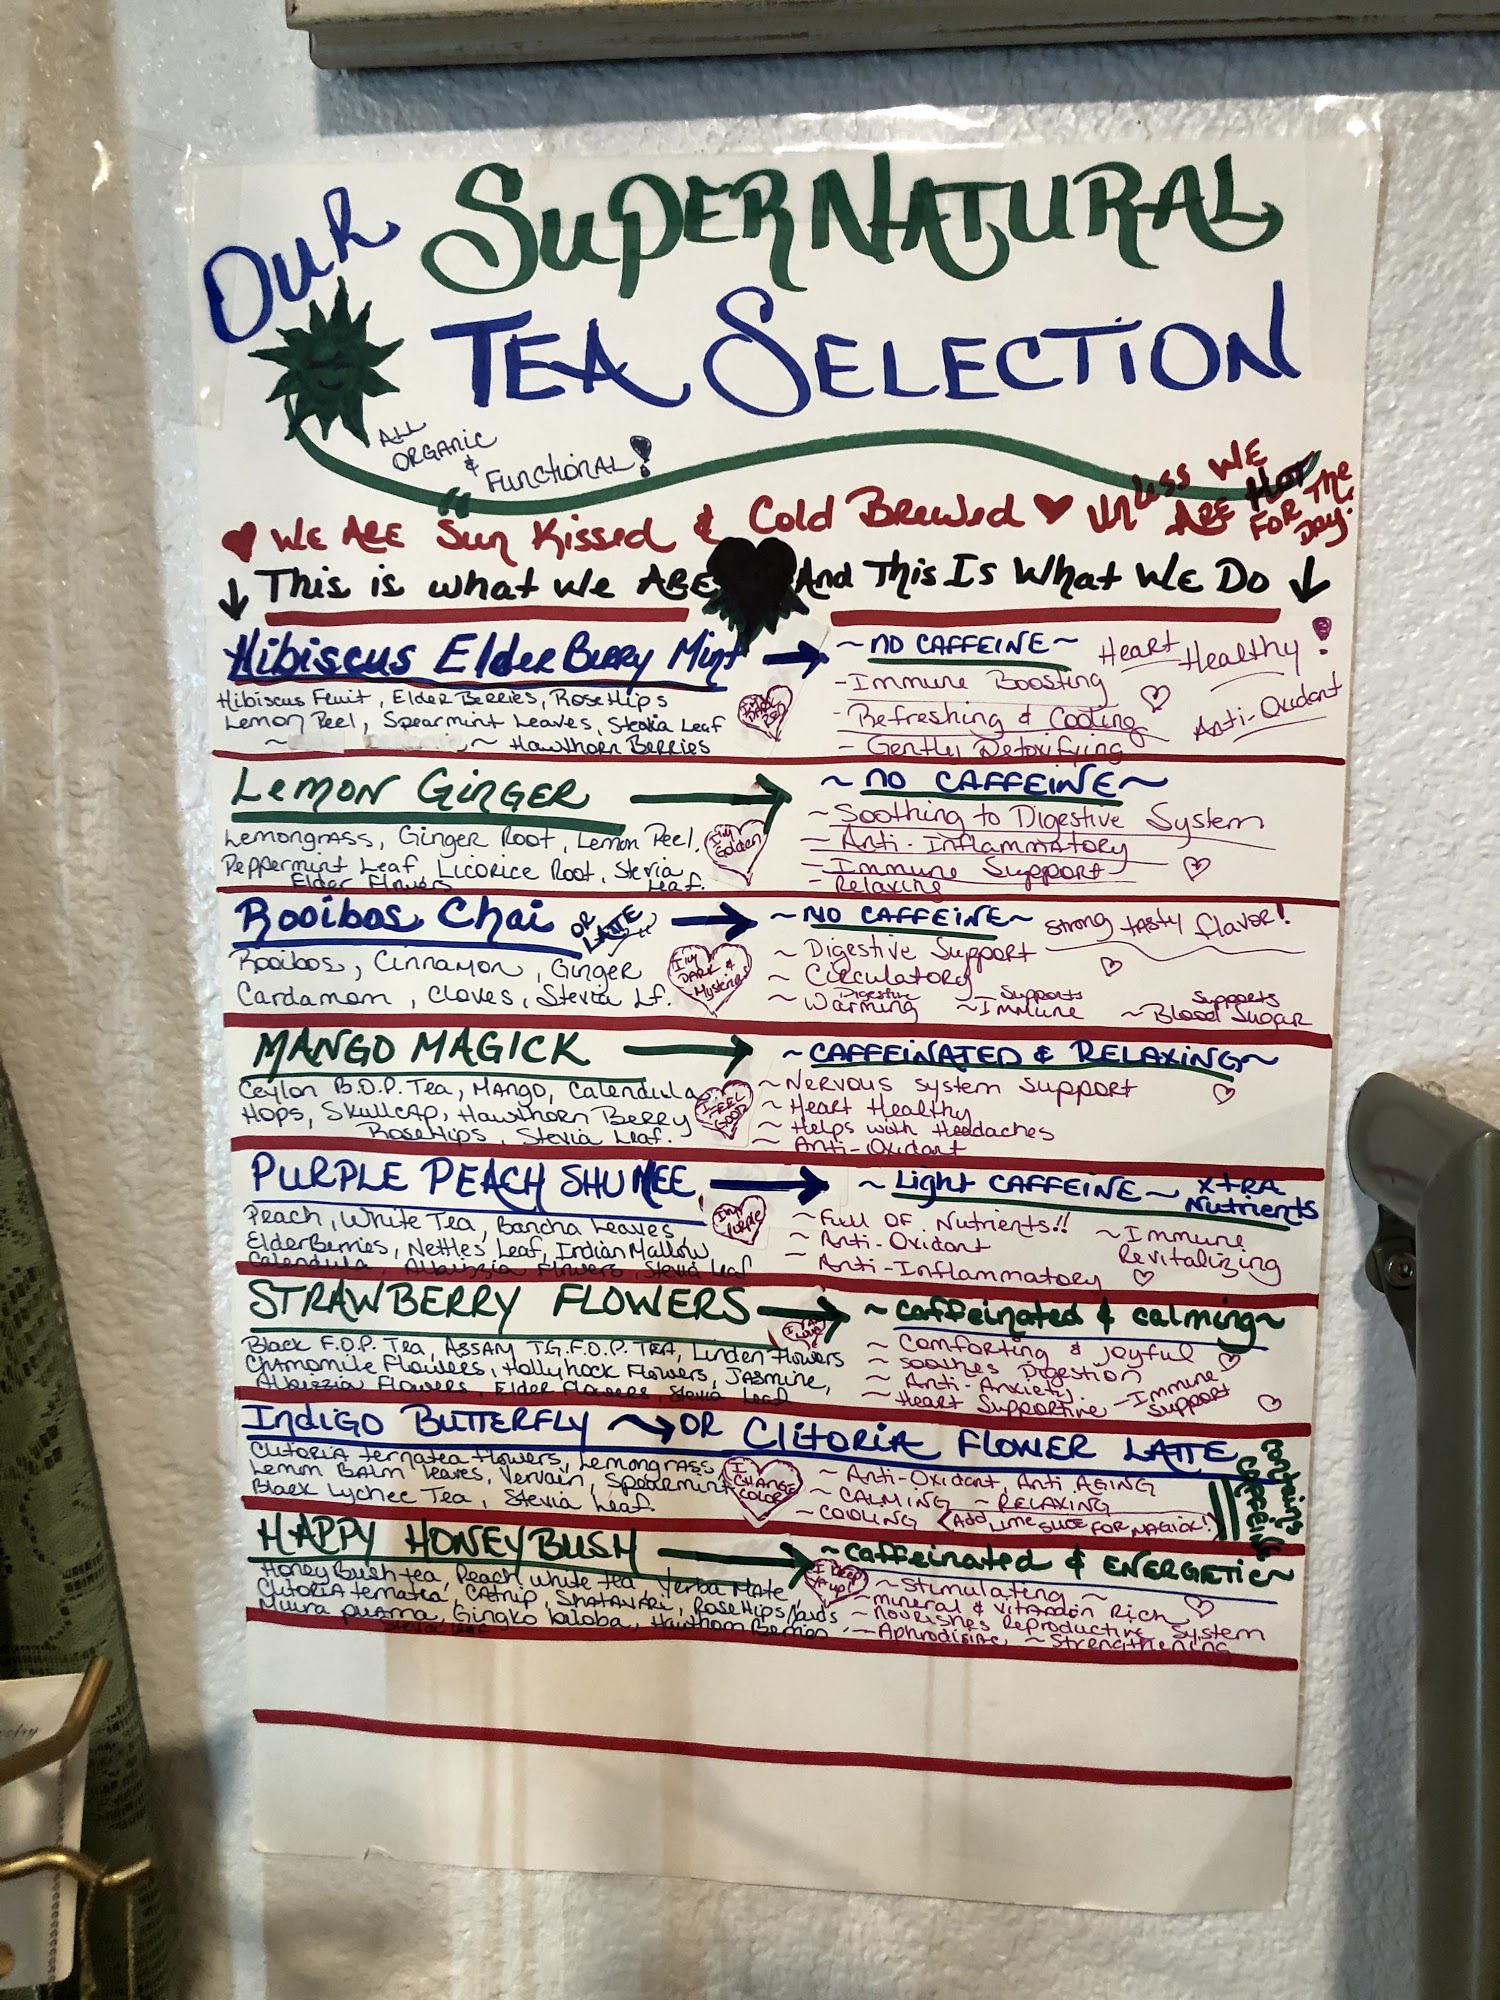 OUR SUPERNATURAL
TEA SELECTION
ALL
ORGANIC
& FUNCTIONAL!
WE ARE "Sun Kissed & Cold Brewed UNless WE
ARE HOT
FOR THE
DAY.
This is what we ARE And This Is What We Do
Hibiscus ElderBerry Mint
Hibiscus Fruit, ElderBerries, RoseHips
Lemon Peel, Spearmint Leaves, Stevia Leaf
~ Hawthorn Berries
~ NO CAFFEINE ~
Heart Healthy!
- Immune Boosting
- Refreshing & Cooling
Anti-Oxidant
- Gently Detoxifying
Lemon Ginger
Lemongrass, Ginger Root, Lemon Peel,
Peppermint Leaf, Licorice Root, Stevia
Elder Flowers Leaf.
I'm
Golden
~ NO CAFFEINE ~
~ Soothing to Digestive System
- Anti-Inflammatory
- Immune Support
- Relaxing
Rooibos Chai OR
LATTE
Rooibos, Cinnamon, Ginger
Cardamom, Cloves, Stevia Lf.
I'm
DARK &
~ NO CAFFEINE ~ Strong tasty flavor!
~ Digestive Support
~ Circulatory
~ Warming Digestive ~ Supports Immune ~ Supports Blood Sugar
MANGO MAGICK
Ceylon B.O.P. Tea, Mango, Calendula
Hops, Skullcap, Hawthorn Berry
RoseHips, Stevia Leaf.
I FEEL
GOOD
~ CAFFEINATED & RELAXING ~
~ Nervous System Support
~ Heart Healthy
~ Helps with Headaches
~ Anti-Oxidant
PURPLE PEACH SHUMEE
Peach, White Tea, Bancha Leaves,
ElderBerries, Nettles Leaf, Indian Mallow,
Calendula, Albizzia Flowers, Stevia Leaf
I'm
Purple
~ Light CAFFEINE ~ XTRA
Nutrients
~ Full OF Nutrients!!
~ Anti-Oxidant
~ Anti-Inflammatory
~ Immune
Revitalizing
STRAWBERRY FLOWERS
Black F.O.P. Tea, ASSAM T.G.F.O.P. TEA, Linden Flowers
Chamomile Flowers, Hollyhock Flowers, Jasmine,
Albizzia Flowers, Elder Flowers, Stevia Leaf
~ Caffeinated & calming ~
~ Comforting & Joyful
~ Soothes Digestion
~ Anti-Anxiety
~ Heart Supportive
- Immune
Support
Indigo BUTTERFLY OR Clitoria FLOWER LATTE
Clitoria ternatea flowers, Lemongrass,
Lemon Balm Leaves, Vervain, Spearmint
Black Lychee Tea, Stevia Leaf.
I
CHANGE
COLOR
~ Anti-Oxidant, Anti AGING
~ CALMING ~ RELAXING
~ COOLING (Add Lime slice FOR MAGICK!)
Contains
Caffeine
HAPPY HONEYBUSH
HoneyBush tea, Peach, white tea, Yerba Mate,
Clitoria ternatea, CATNIP, Shatavari, RoseHips,
Muira puama, Gingko baloba, Hawthorn Berries
Stevia Leaf
~ Caffeinated & ENERGETIC ~
~ Stimulating ~
~ mineral & vitamin Rich
~ Nourishes Reproductive System
~ Aphrodisiac, ~ Strengthening